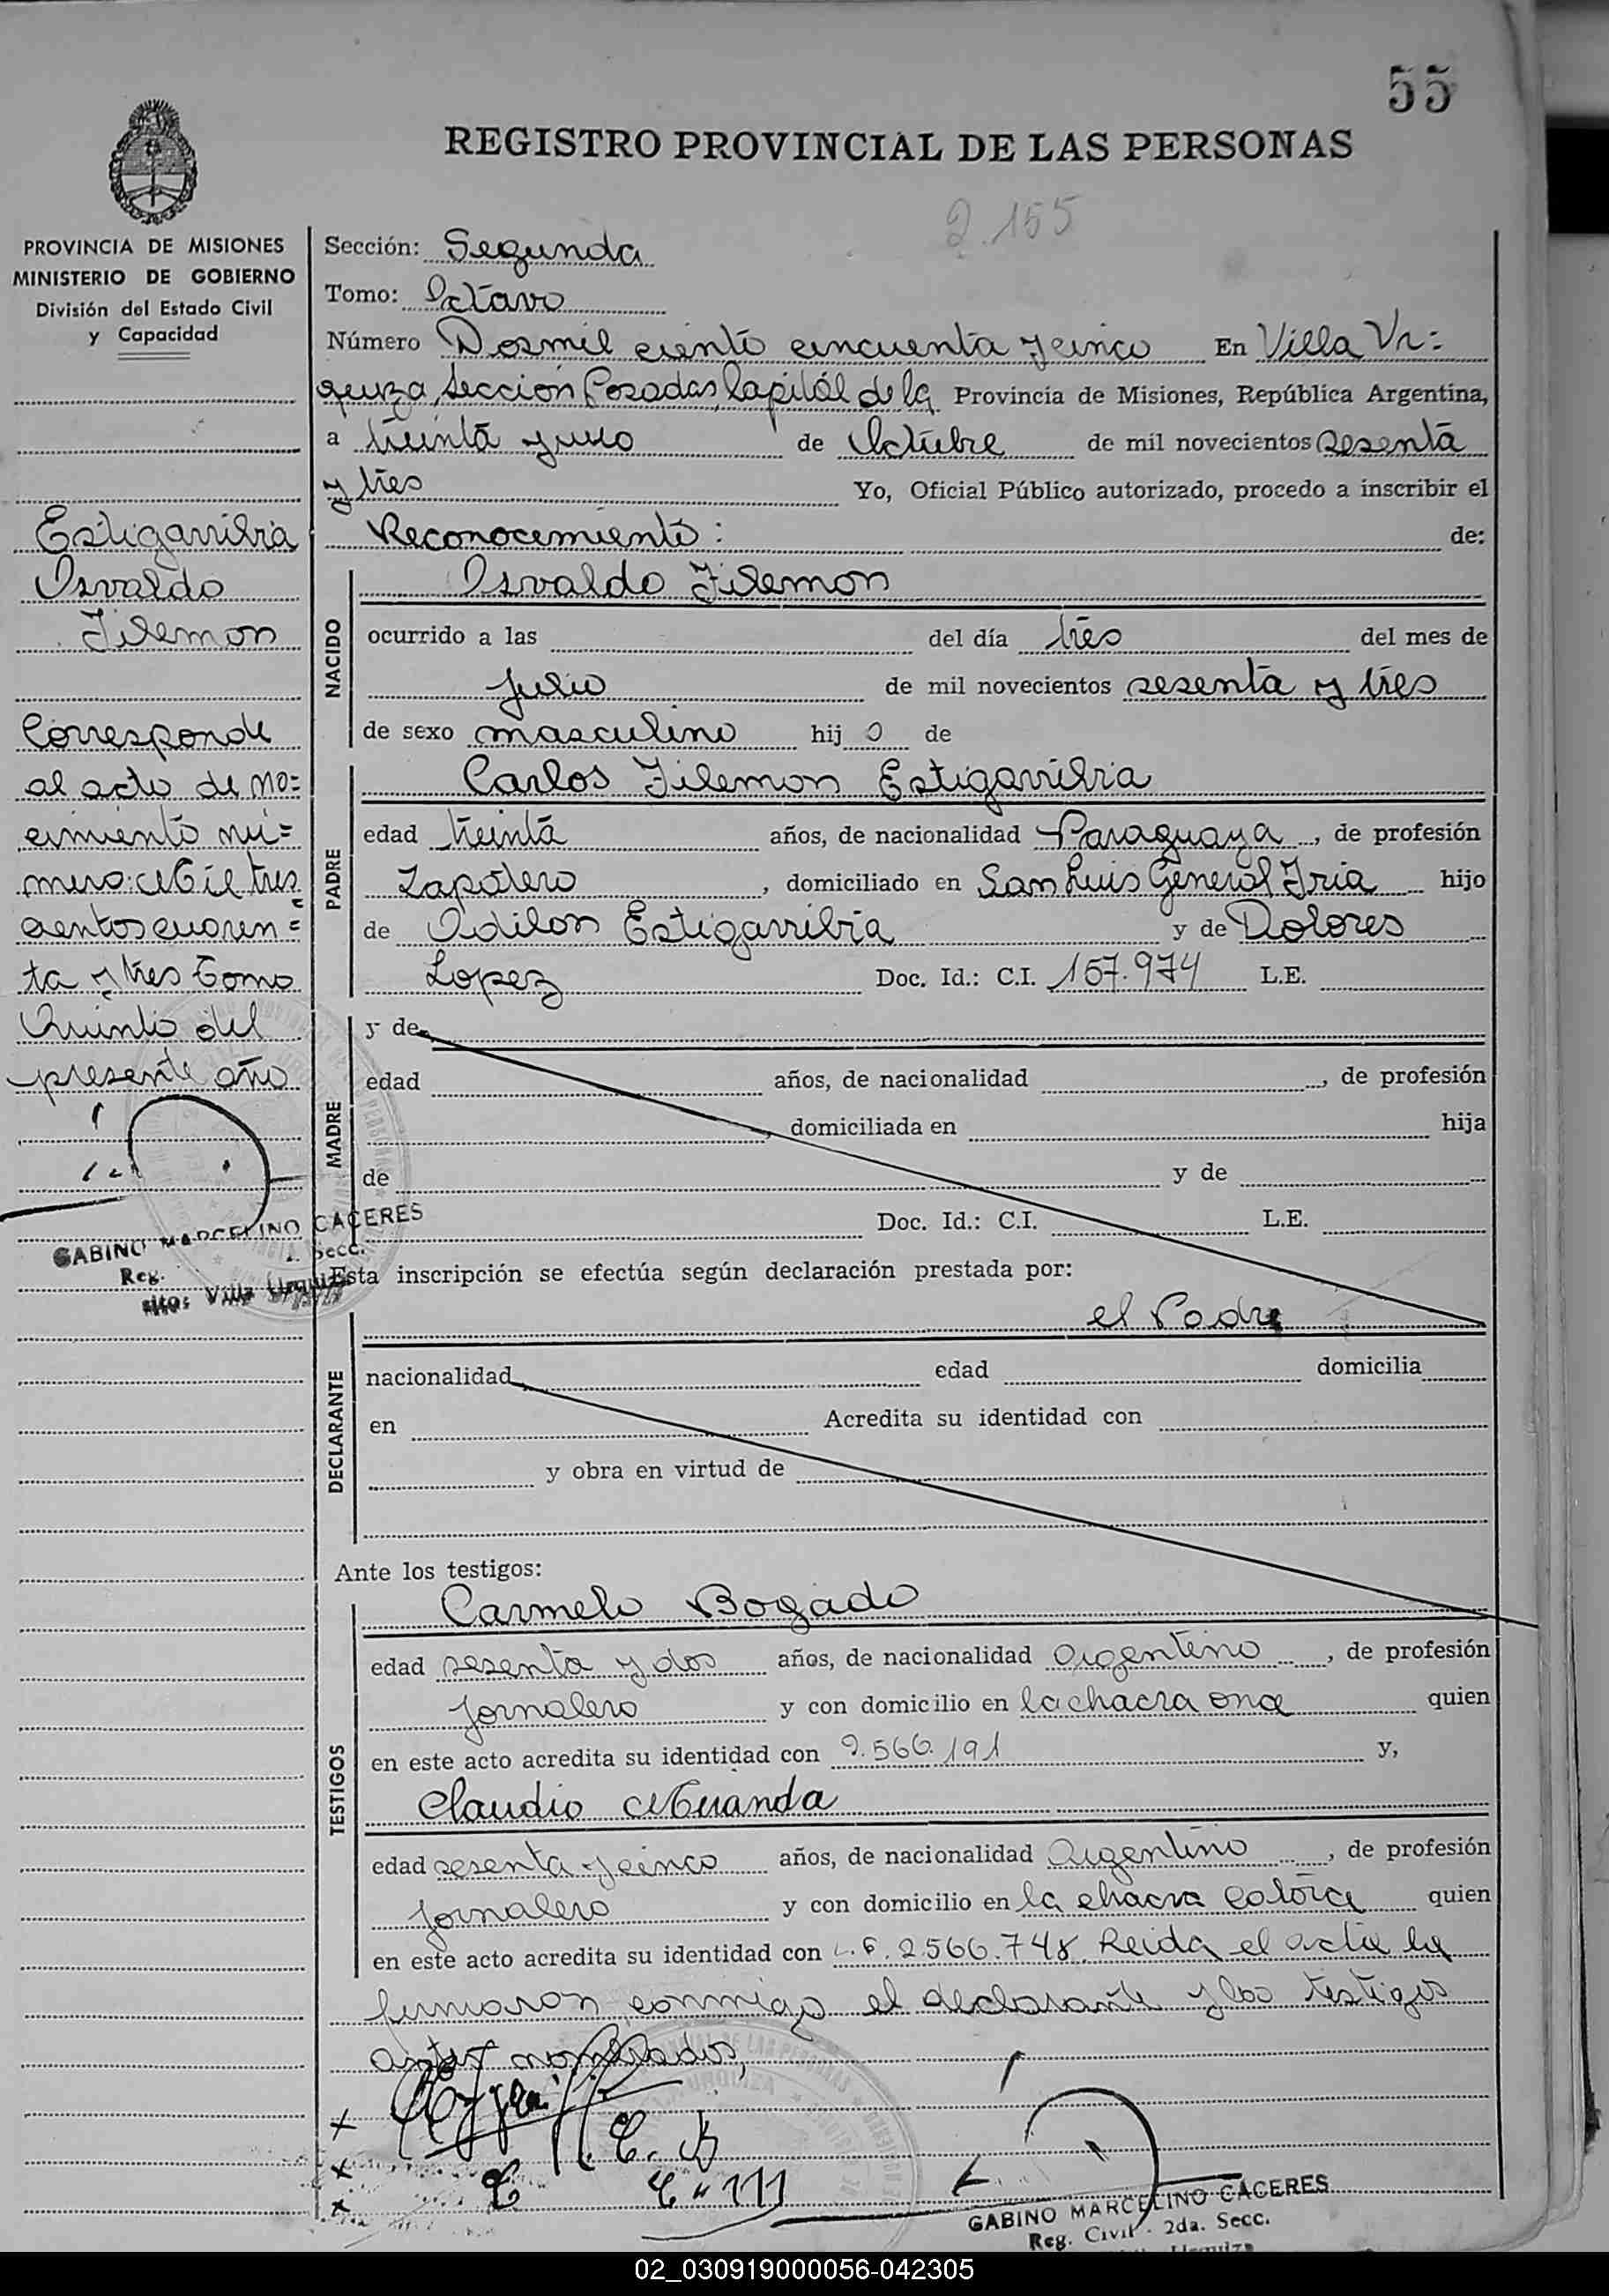 55
REGISTRO PROVINCIAL DE LAS PERSONAS
2.155
PROVINCIA DE MISIONES
MINISTERIO DE GOBIERNO
División del Estado Civil
y Capacidad
Estigarribia
Osvaldo
Filemon
Corresponde
al acto de na=
cimiento nú=
mero: Mil tres
cientos cuaren=
ta y tres Tomo
Quinto del
presente año
GABINO MARCELINO CACERES
Reg. Secc.
Villa Urquiza
Sección: Segunda
Tomo: Octavo
Número Dosmil ciento cincuenta y cinco En Villa Ur=
quiza, Sección Posadas, Capitál de la Provincia de Misiones, República Argentina,
a treinta y uno de Octubre de mil novecientos sesenta
y tres Yo, Oficial Público autorizado, procedo a inscribir el
Reconocemiento: de:
NACIDO
Osvaldo Filemon
ocurrido a las del día tres del mes de
Julio de mil novecientos sesenta y tres
de sexo masculino hij o de
PADRE
Carlos Filemon Estigarribia
edad treinta años, de nacionalidad Paraguaya, de profesión
Zapatero, domiciliado en San Luis General Fria hijo
de Odilon Estigarribia y de Dolores
Lopez Doc. Id.: C.I. 157.974 L.E.
MADRE
y de
edad años, de nacionalidad , de profesión
, domiciliada en hija
de y de
Doc. Id.: C.I. L.E.
Esta inscripción se efectúa según declaración prestada por:
el Padre
DECLARANTE
nacionalidad edad domicilia
en Acredita su identidad con
y obra en virtud de
Ante los testigos:
TESTIGOS
Carmelo Bogado
edad sesenta y dos años, de nacionalidad Argentino, de profesión
Jornalero y con domicilio en la chacra once quien
en este acto acredita su identidad con 2.566.191 y,
Claudio Miranda
edad sesenta y cinco años, de nacionalidad Argentino, de profesión
Jornalero y con domicilio en la chacra catorce quien
en este acto acredita su identidad con L.E. 2.566.748. Leida el acta la
firmaron conmigo el declarante y los testigos
antes nombrados,
C. B
C M
GABINO MARCELINO CACERES
Reg. Civil - 2da. Secc.
Urquiza
02_030919000056-042305